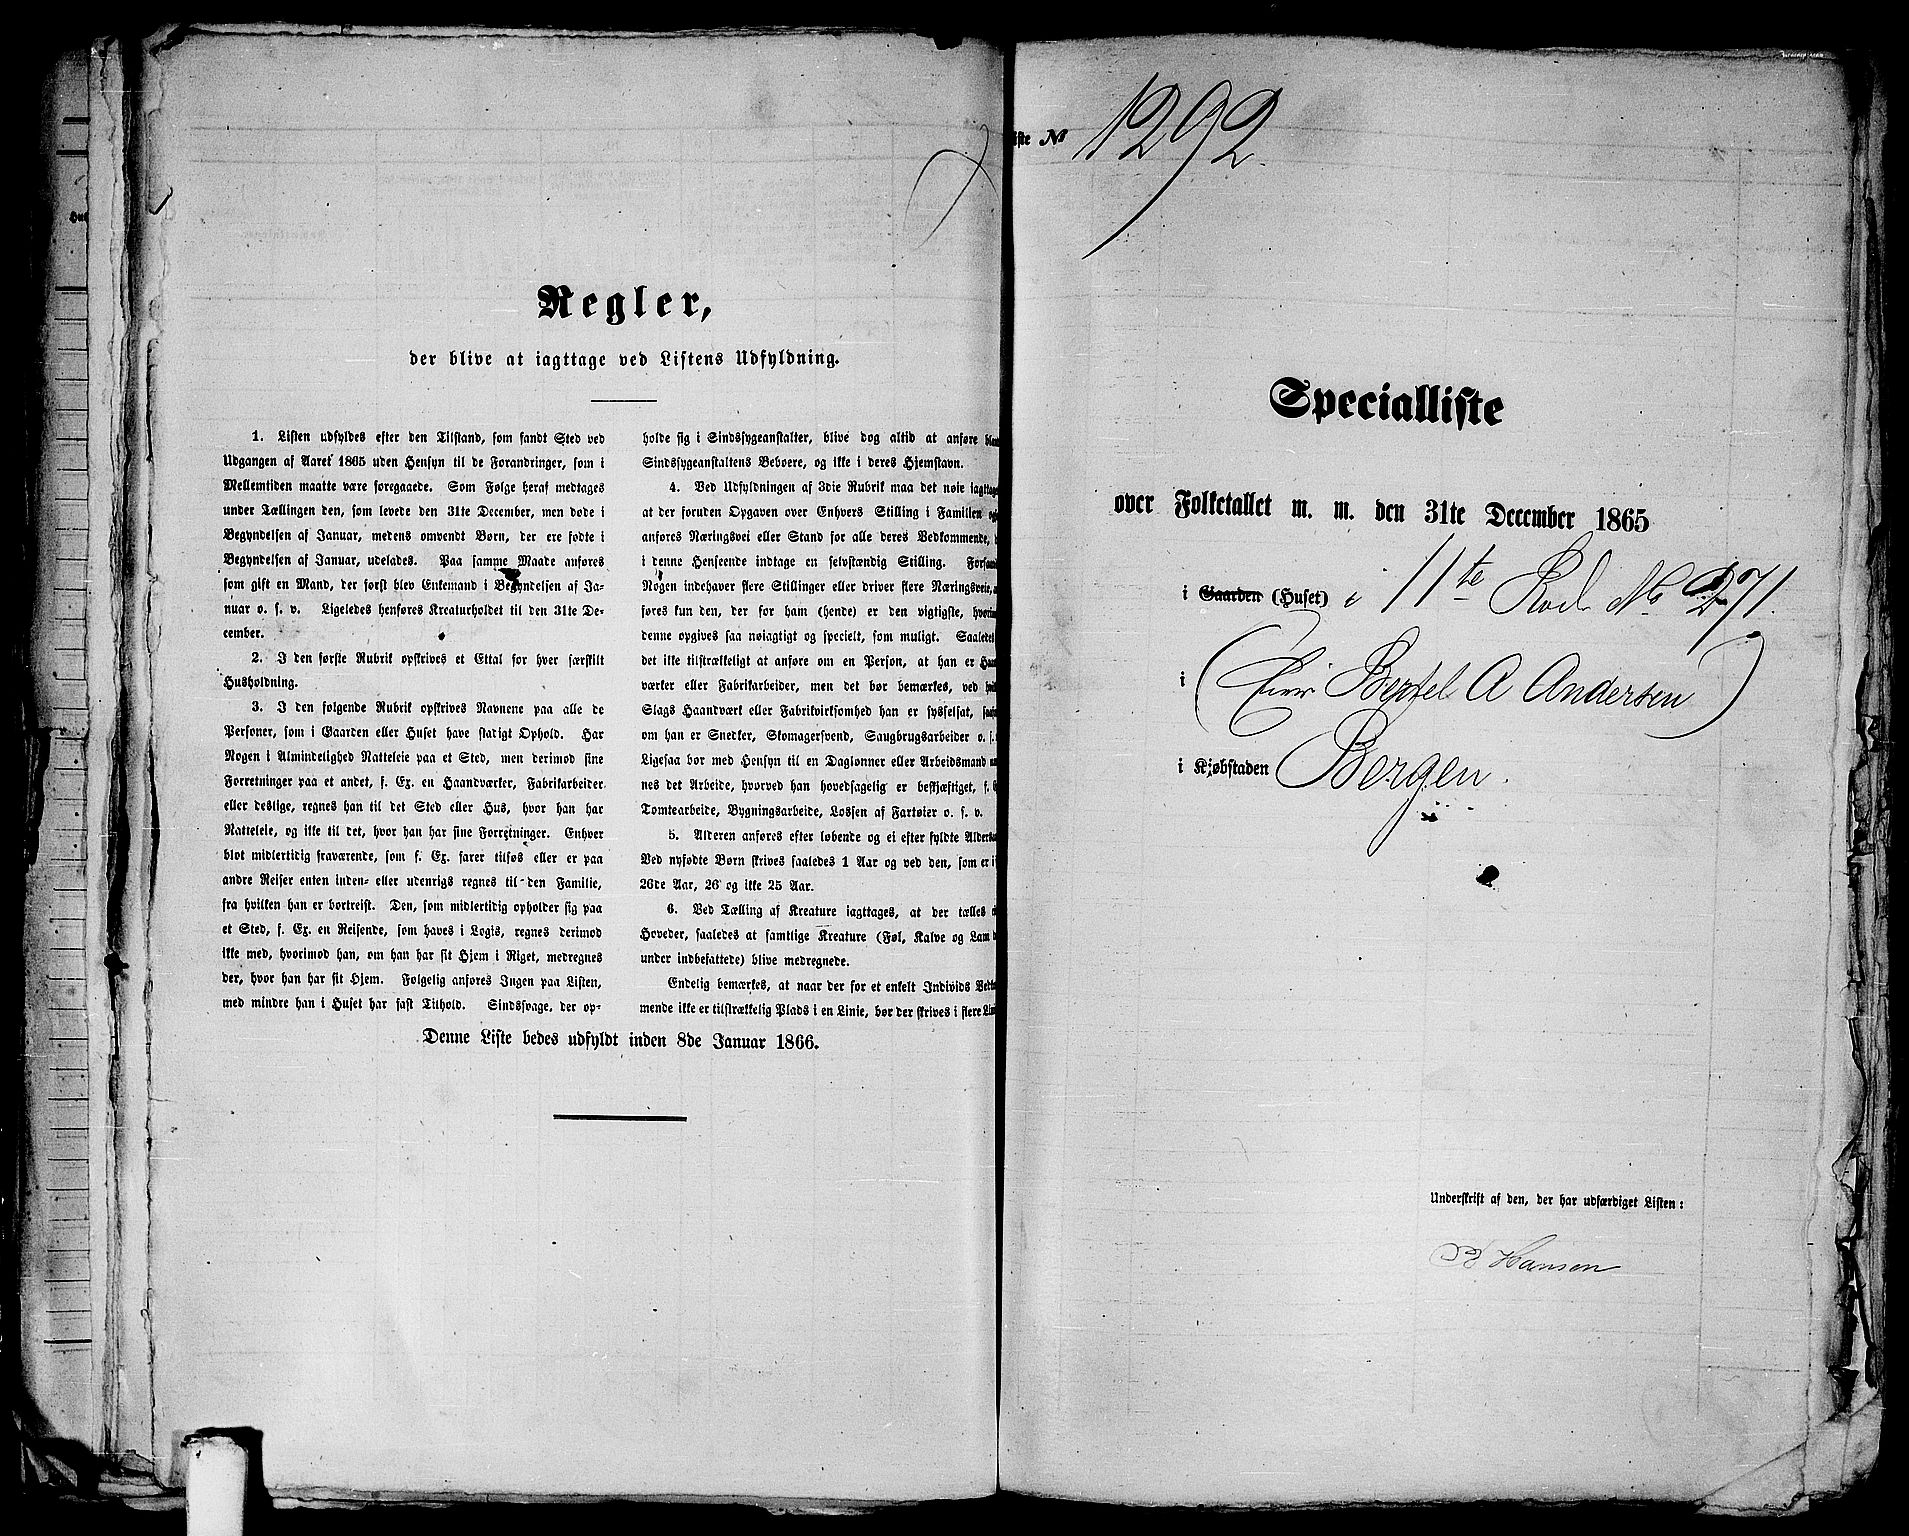 Regler,
der blive at iagttage ved Listens Udfyldning.
1. Listen udfyldes efter den Tilstand, som fandt Sted ved
Udgangen af Aaret 1865 uden Hensyn til de Forandringer, som i
Mellemtiden maatte være foregaaede. Som Følge heraf medtages
under Tællingen den, som levede den 31te December, men døde i
Begyndelsen af Januar, medens omvendt Børn, der ere fødte i
Begyndelsen af Januar, udelades. Paa samme Maade anføres
som gift en Mand, der først blev Enkemand i Begyndelsen af Ja-
nuar o. s. v. Ligeledes henføres Kreaturholdet til den 31te De-
cember.
2. I den første Rubrik opskrives et Ettal for hver særskilt
Husholdning.
3. I den følgende Rubrik opskrives Navnene paa alle de
Personer, som i Gaarden eller Huset have stadigt Ophold. Har
Nogen i Almindelighed Natteleie paa et Sted, men derimod sine
Forretninger paa et andet, f. Ex. en Haandværker, Fabrikarbeider
eller deslige, regnes han til det Sted eller Hus, hvor han har
Natteleie, og ikke til det, hvor han har sine Forretninger. Enhver
blot midlertidig fraværende, som f. Ex. farer tilsøs eller er paa
andre Reiser enten inden- eller udenrigs regnes til den Familie,
fra hvilken han er bortreist. Den, som midlertidig opholder sig paa
et Sted, f. Ex. en Reisende, som haves i Logis, regnes derimod
ikke med, hvorimod han, om han har sit Hjem i Riget, medregnes
der, hvor han har sit Hjem. Følgelig anføres Ingen paa Listen,
med mindre han i Huset har fast Tilhold. Sindssvage, der op-
holde sig i Sindssygeanstalter, blive dog altid at anføre
Sindssygeanstaltens Beboere, og ikke i deres Hjemstavn.
4. Ved Udfyldningen af 3die Rubrik maa det nøie
at der foruden Opgaven over Enhvers Stilling i Familien
anføres Næringsvei eller Stand for alle deres Vedkommende,
i denne Henseende indtage en selvstændig Stilling.
Nogen indehaver flere Stillinger eller driver flere Næringsveie,
føres kun den, der for ham (hende) er den vigtigste,
denne opgives saa nøiagtigt og specielt, som muligt.
det ikke tilstrækkeligt at anføre om en Person, at han er
værker eller Fabrikarbeider, men det bør bemærkes, ved
Slags Haandværk eller Fabrikvirksomhed han er sysselsat,
om han er Snedker, Skomagersvend, Saugbrugsarbeider o. s.
Ligesaa bør med Hensyn til en Daglønner eller Arbeidsmand
nes det Arbeide, hvorved han hovedsagelig er beskjæftiget, f.
Tomtearbeide, Bygningsarbeide, Lossen af Fartøier o. s. v.
5. Alderen anføres efter løbende og ei efter fyldte
Ved nyfødte Børn skrives saaledes 1 Aar og ved den, som er i
26de Aar, 26 og ikke 25 Aar.
6. Ved Tælling af Kreature iagttages, at der tælles
Hoveder, saaledes at samtlige Kreature (Føl, Kalve og Lam
under indbefattede) blive medregnede.
Endelig bemærkes, at naar der for et enkelt Individs
mende ikke er tilstrækkelig Plads i en Linie, bør der skrives i flere
Denne Liste bedes udfyldt inden 8de Januar 1866.
iste № 1292.
Specialliste
over Folketallet m. m. den 31te December 1865
i Gaarden (Huset) i 11te Rode No 271.
i (Eier A Andersen)
i Kjøbstaden Bergen.
Underskrift af den, der har udfærdiget Listen:
Hansen